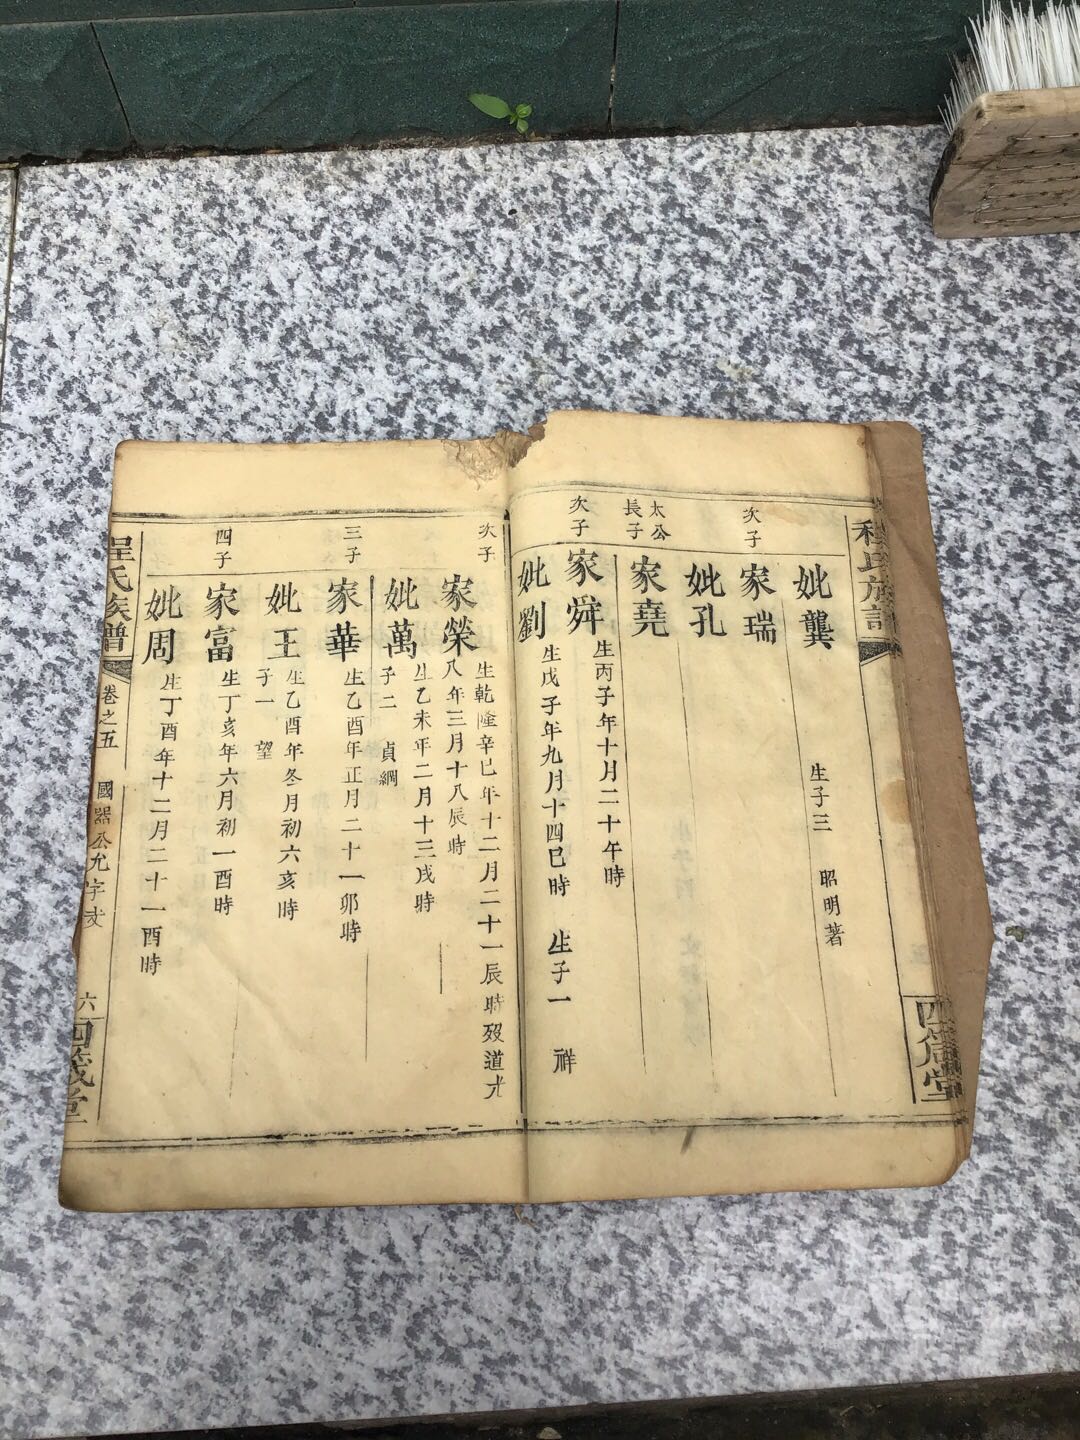 程氏族譜
四箴堂
妣龔 生子三 昭明著
次子 家瑞
妣孔
太公長子 家堯
次子 家舜 生丙子年十月二十午時
妣劉 生戊子年九月十四巳時 生子一 祥
次子 家榮 生乾隆辛巳年十二月二十一辰時歿道光
八年三月十八辰時
妣萬 生乙未年二月十三戌時
子二 貞綱
三子 家華 生乙酉年正月二十一卯時
妣王 生乙酉年冬月初六亥時
子一 望
四子 家富 生丁亥年六月初一酉時
妣周 生丁酉年十二月二十一酉時
程氏族譜 卷之五 國器公允字派 六 四箴堂